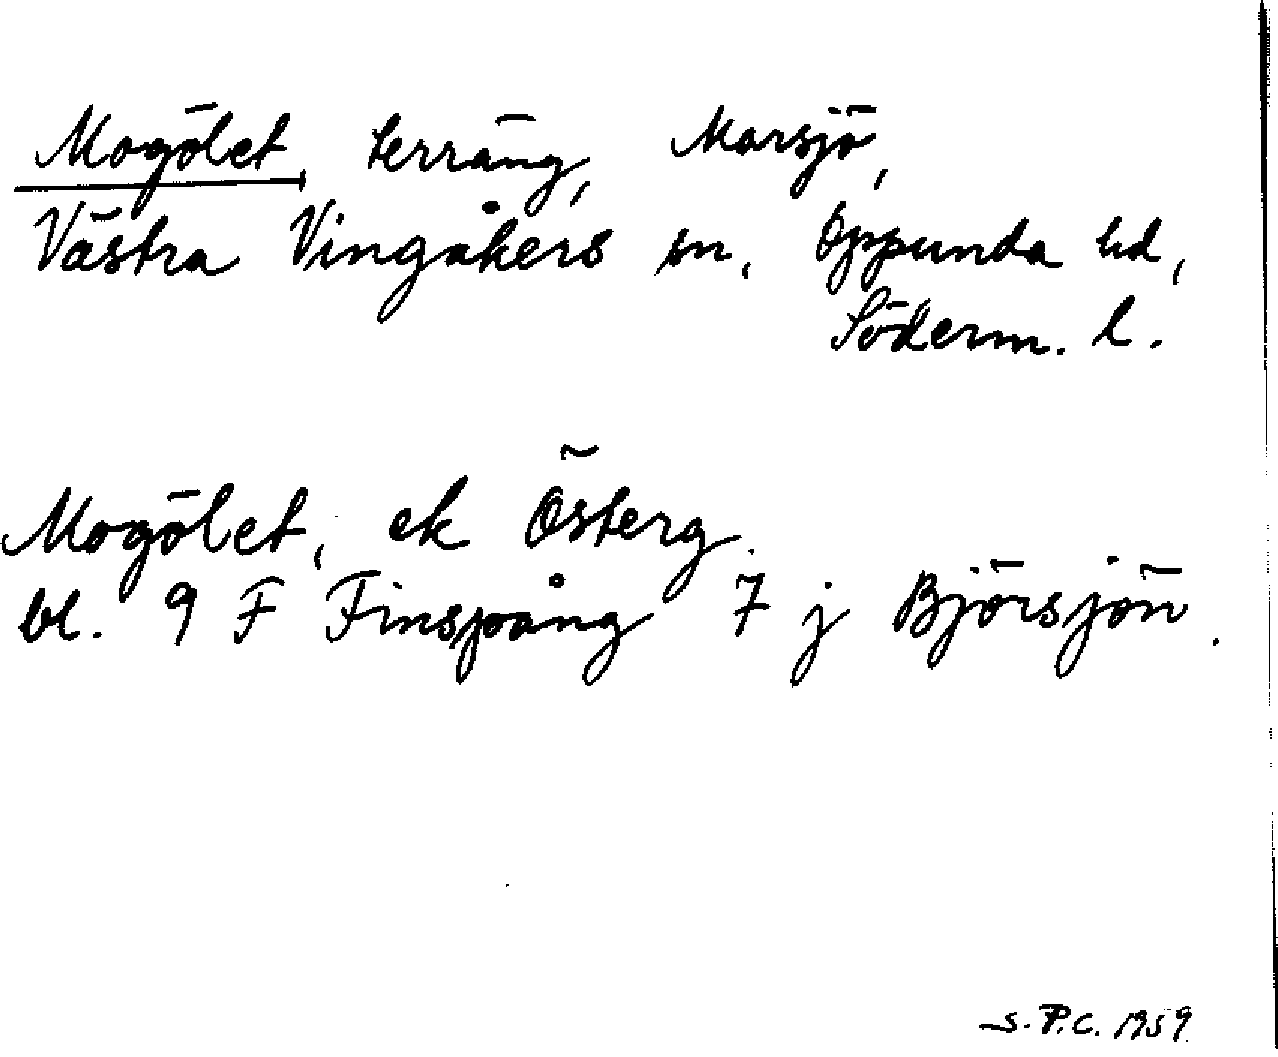 Mogölet, terräng, Marsjö,
Västra Vingåkers sn, Oppunda hd,
Söderm. l.
Mogölet, ek Österg.
bl. 9 F Finspång 7 j Björsjön.
S.P.C. 1959.